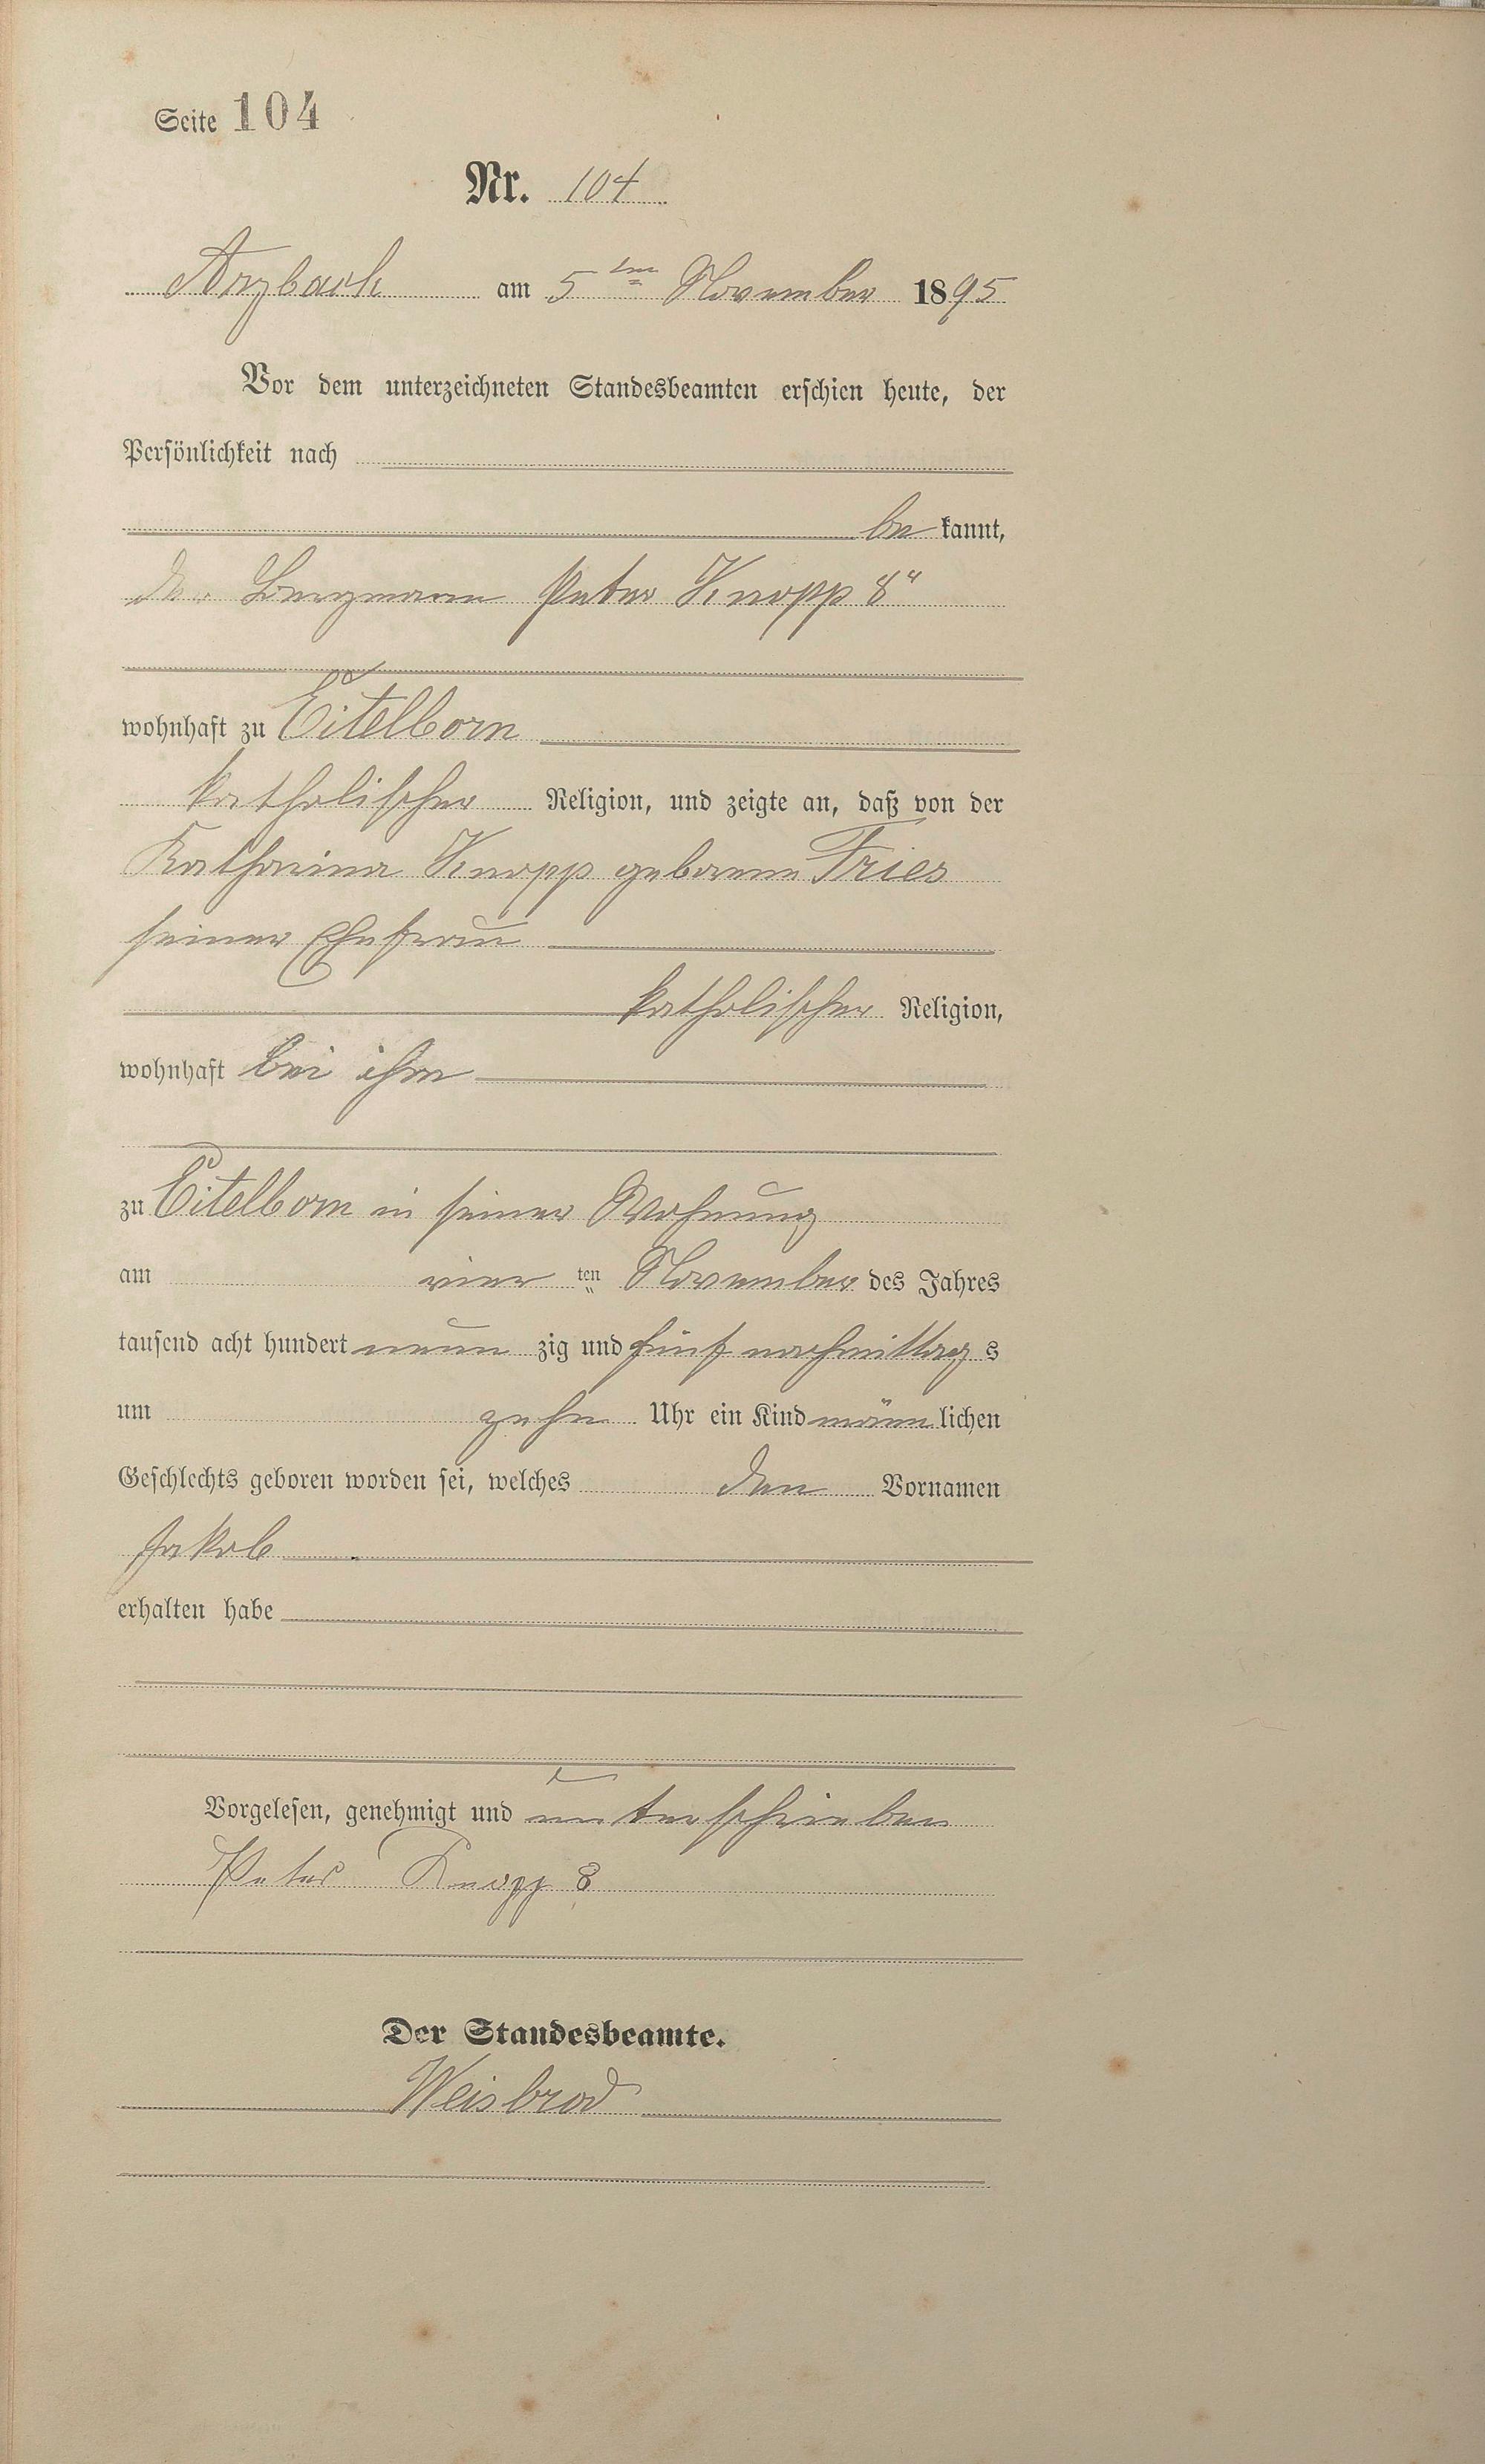 Seite 104
Nr. 104
Arzbach am 5ten November 1895
Vor dem unterzeichneten Standesbeamten erschien heute, der
Persönlichkeit nach
be kannt,
der Bergmann Peter Knopp 8"
wohnhaft zu Eitelborn
katholischer Religion, und zeigte an, daß von der
Katharina Knopp geborene Fries
seiner Ehefrau
katholischer Religion,
wohnhaft bei ihm
zu Eitelborn in seiner Wohnung
am vier ten November des Jahres
tausend acht hundert neun zig und fünf nachmittag s
um zehn Uhr ein Kind männ lichen
Geschlechts geboren worden sei, welches den Vornamen
Jakob
erhalten habe
Vorgelesen, genehmigt und unterschrieben
Peter Knopp 8
Der Standesbeamte.
Weisbrod